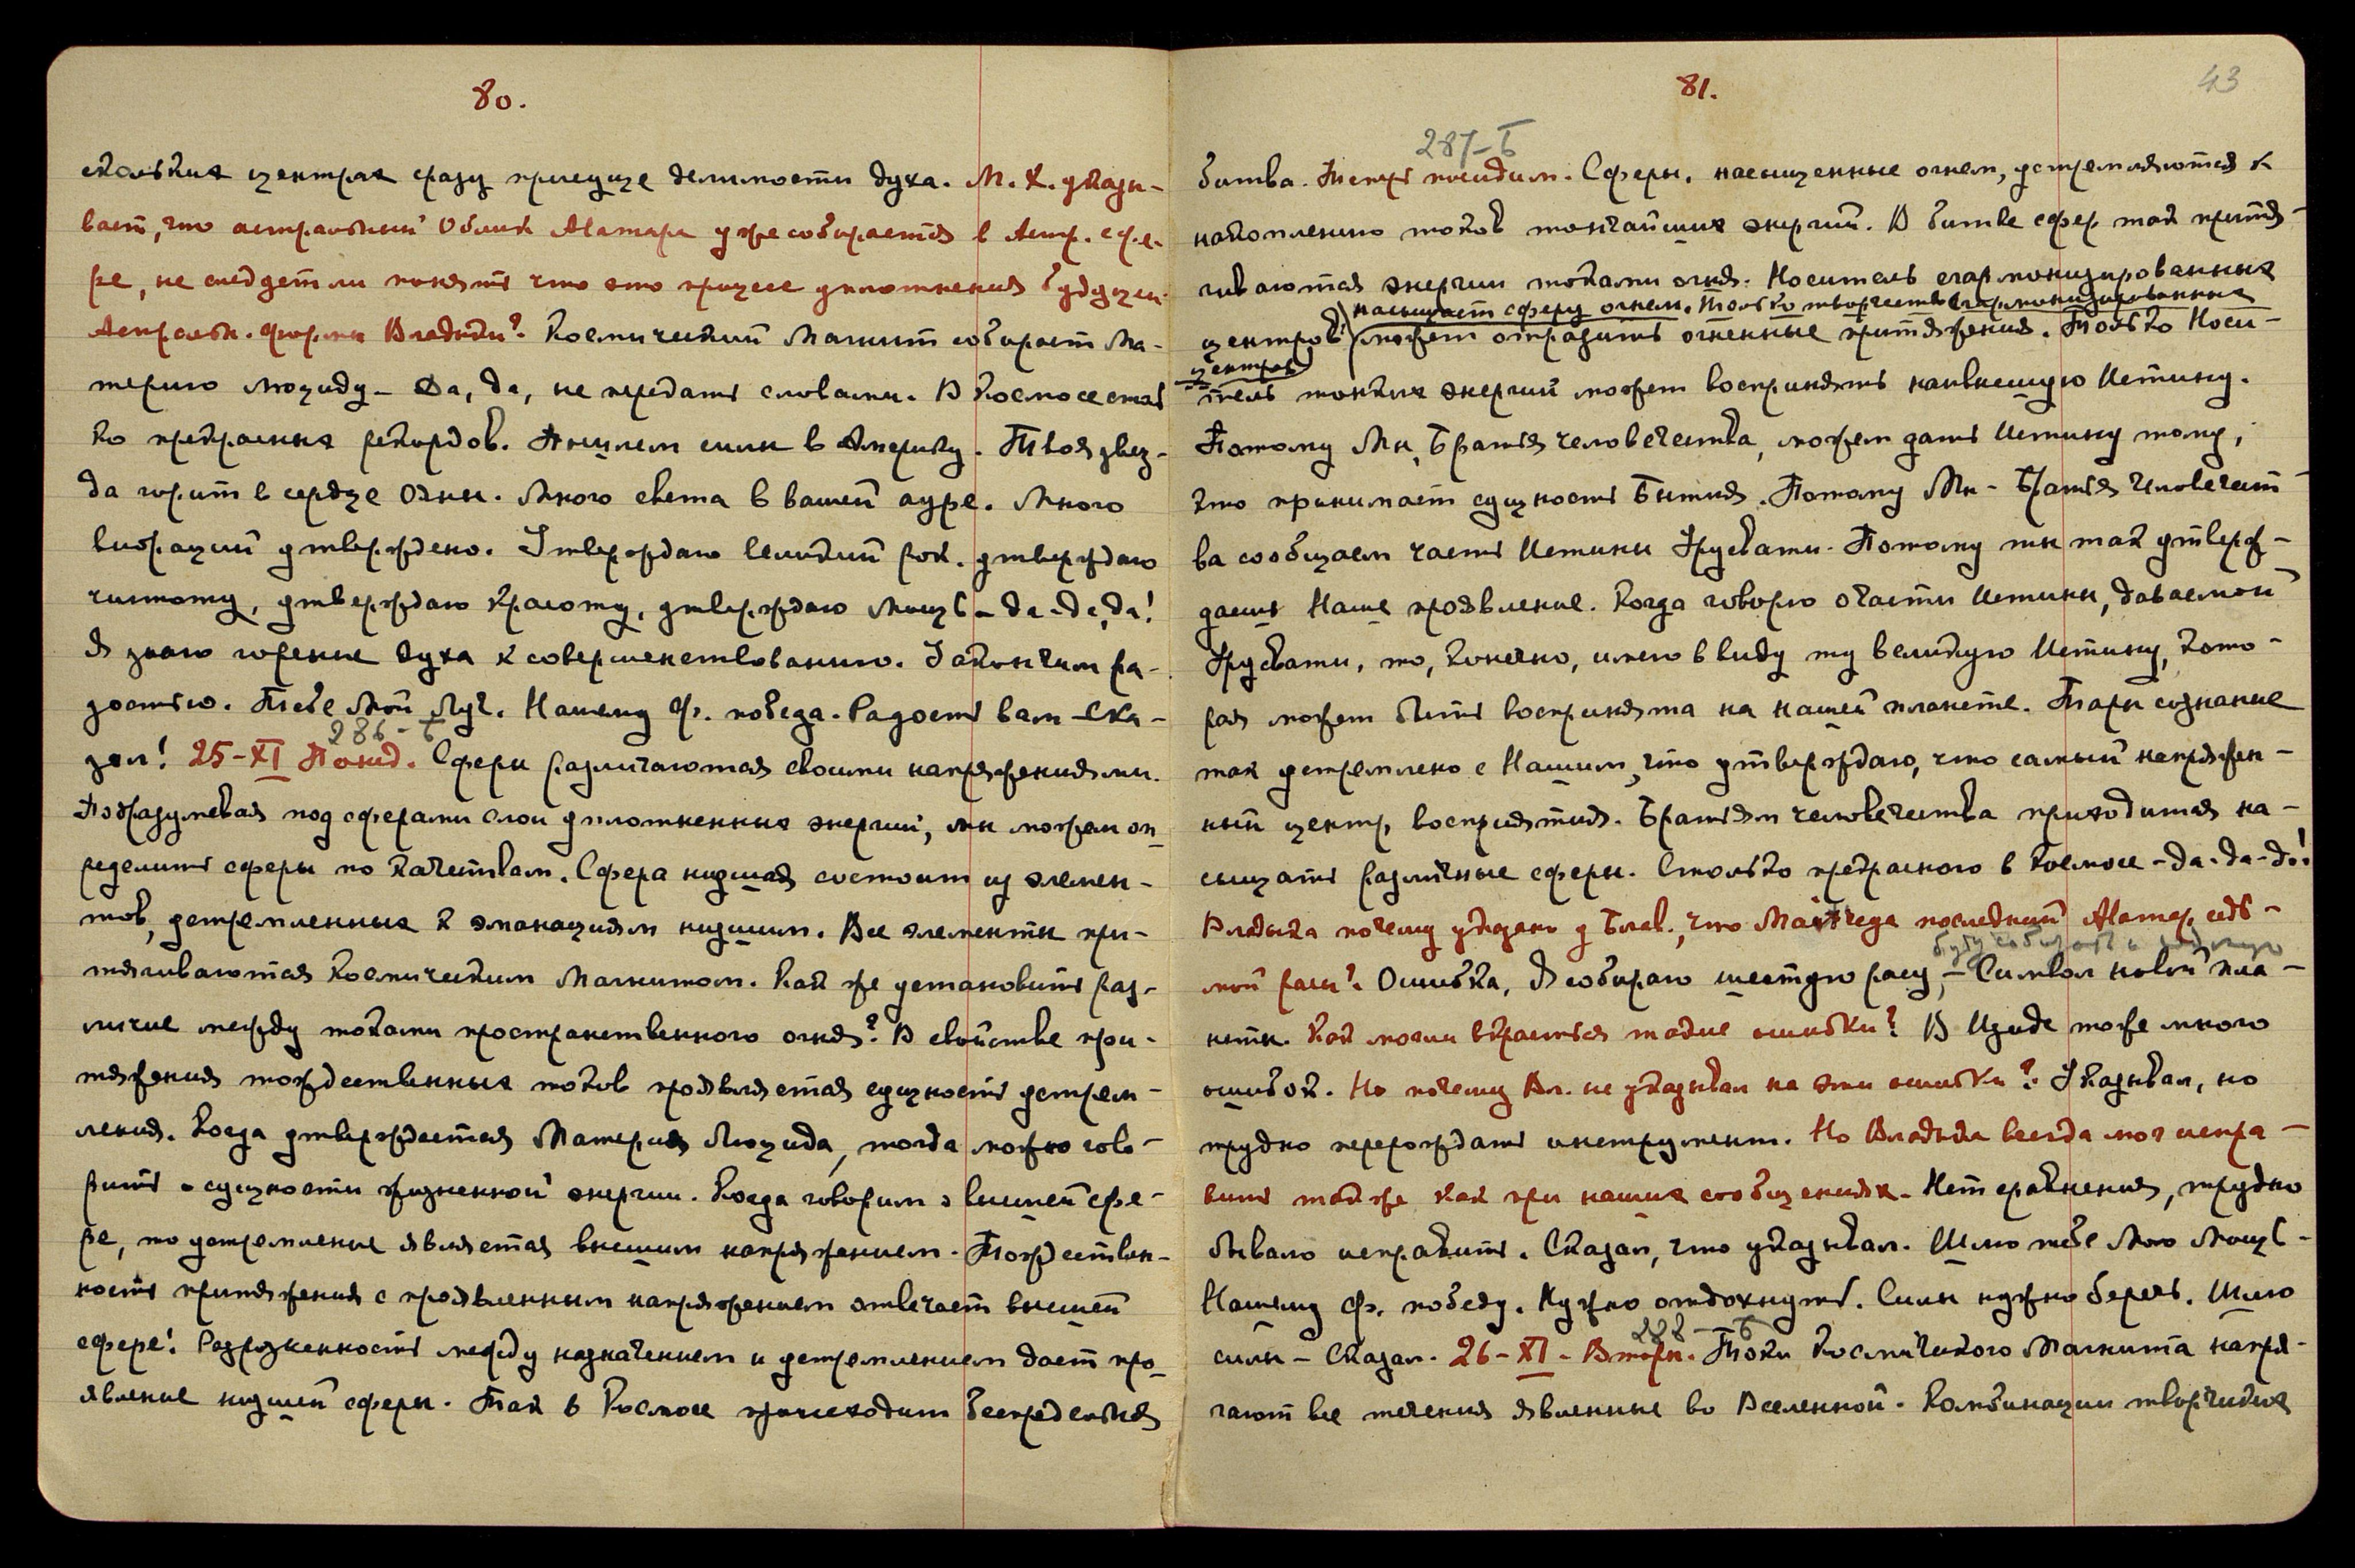 80.
скольких центрах сразу присуще делимости духа. М. Х. указы-
вает, что астральный Облик Матари уже собирается в Астр. сфе-
ре, не следует ли понять что это процесс уплотнения будущей
Астральн. формы Владыки? Космический Магнит собирает Ма-
терию Люциду – Да, да, не передать словами. В Космосе столь
ко прекрасных рекордов. Пошлем силы в Америку. Твоя звез-
да горит в сердце Ояны. Много света в вашей ауре. Много
вибраций утверждено. Утверждаю великий рок. утверждаю
чистоту, утверждаю красоту, утверждаю мощь – да-да, да!
Я знаю горение духа к совершенствованию. Закончим ра-
достью. Тебе Мой Луч. Нашему Ф. победа. Радость вам – Ска-
286-Б
зал! 25-XI Понед. Сферы различаются своими напряжениями.
Подразумевая под сферами слои уплотненных энергий, мы можем оп
ределить сферы по качествам. Сфера низшая состоит из элемен-
тов, устремленных к эманациям низшим. Все элементы при-
тягиваются Космическим Магнитом. Как же установить раз-
личие между токами пространственного огня? В свойстве при-
тяжения тождественных токов проявляется сущность устрем-
ления. Когда утверждается Материя Люцида, тогда можно гово-
рить о сущности жизненной энергии. Когда говорим о высшей сфе-
ре, то устремление является высшим напряжением. Тождествен-
ность притяжения с проявленным напряжением отвечает высшей
сфере! Разрозненность между назначением и устремлением дает про
явление низшей сферы. Так в Космосе происходит беспредельная
81.
43
287-Б
битва. Теперь посидим. Сферы, насыщенные огнем, устремляются к
накоплению токов тончайших энергий. В битве сфер так притя-
гиваются энергии токами огня. Носитель сгармонизированных
насыщает сферу огнем. Только творчество сгармонизированных
центров может отразить огненные притяжения. Только Носи-
центров
тель тонких энергий может воспринять наивысшую Истину.
Потому Мы, Братья человечества, можем дать Истину тому,
кто принимает сущность Бытия. Потому Мы – Братья Человечест-
ва сообщаем часть Истины Урусвати. Потому ты так утверж-
даешь Наше проявление. Когда говорю о части Истины, даваемой
Урусвати, то, конечно, имею в виду ту великую Истину, кото-
рая может быть воспринята на нашей планете. Тары сознание
так устремлено с Нашим, что утверждаю, что самый напряжен-
ный центр, восприятия. Братьям человечества приходится на-
сыщать различные сферы. Столько прекрасного в Космосе – да-да-да!
Владыка почему указано у Блав., что Майтрейя последний Матер. седь-
буду собирать и седьмую
мой расы? Ошибка, Я собираю шестую расу, – Символ новой пла-
неты. Как могли вкрасться такие ошибки? В Изиде тоже много
ошибок. Но почему Вл. не указывал на эти ошибки? Указывал, но
трудно перерождать инструмент. Но Владыка всегда мог испра-
вить так же как при наших сообщениях. Нет сравнения, трудно
бывало исправить. Сказал, что указывал. Шлю тебе Мою Мощь –
Нашему Ф. победу. Нужно отдохнуть. Силы нужно беречь. Шлю
288 – Б
силы – Сказал. 26 – XI – Вторн. Токи Космического Магнита напря-
гают все течения явленные во Вселенной. Комбинации творческих